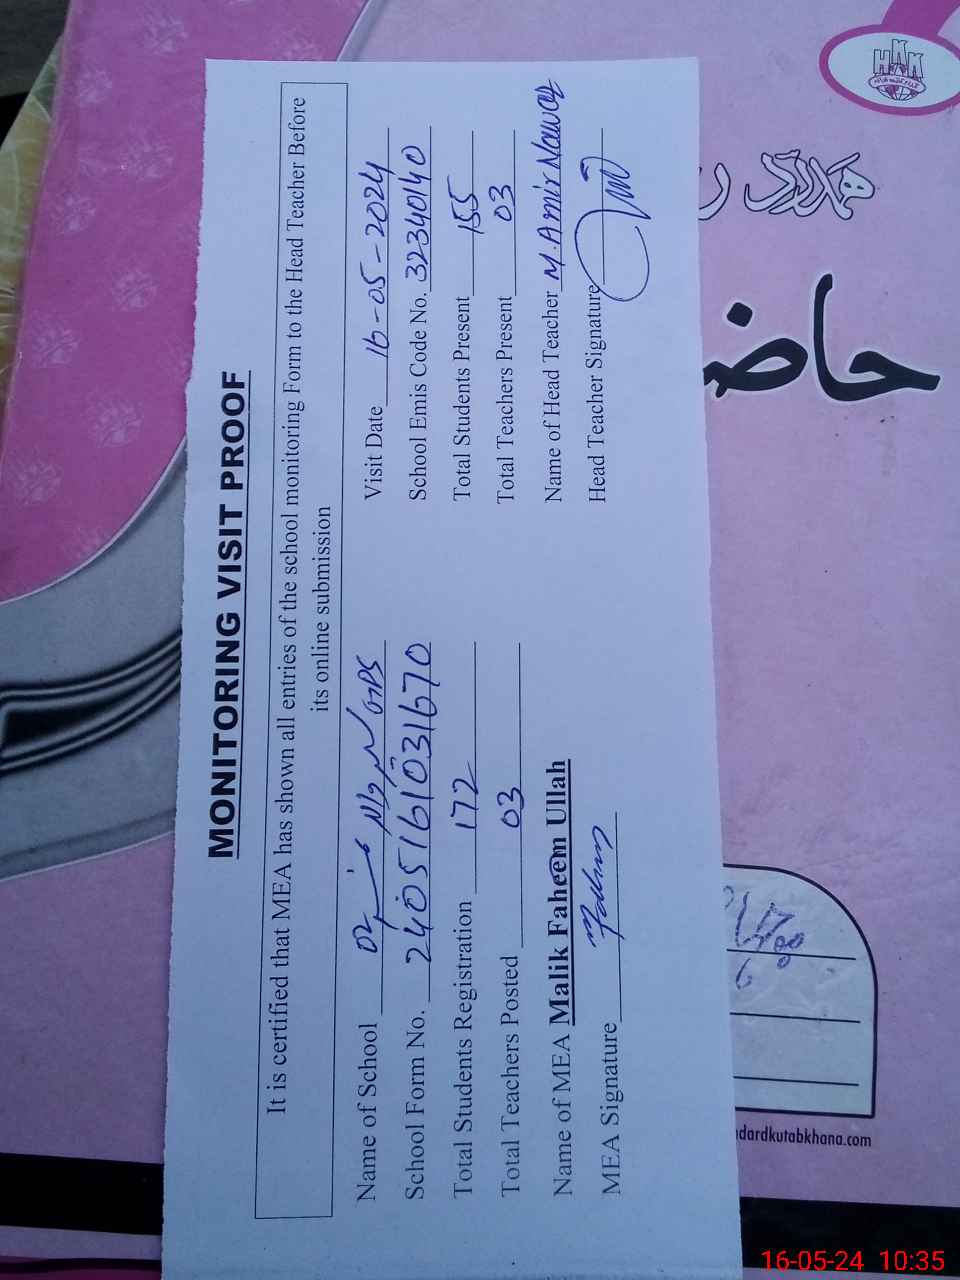 MONITORING VISIT PROOF
It is certified that MEA has shown all entries of the school monitoring Form to the Head Teacher Before
its online submission
Name of School GMPS
Visit Date 16-05-2024
School Form No. 2405161031670
School Emis Code No. 32340140
Total Students Registration 172
Total Students Present 155
Total Teachers Posted 03
Total Teachers Present 03
Name of MEA Malik Faheem Ullah
Name of Head Teacher M. Amir Nawaz
MEA Signature
Head Teacher Signature
HKK
ہمدرد
حاض
dardkutabkhana.com
16-05-24 10:35